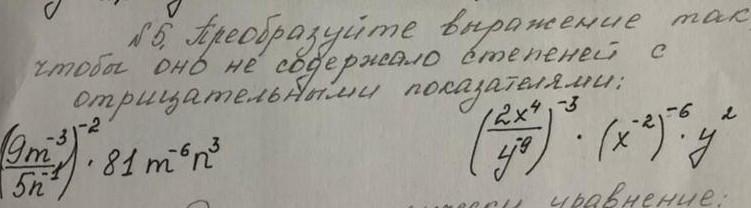 №5. Преобразуйте выражение так,
чтобы оно не содержало степеней с
отрицательными показателями:
(9m⁻³/5n⁻¹)⁻² · 81 m⁻⁶n³ (2x⁴/y⁻⁹)⁻³ · (x⁻²)⁻⁶ · y²
уравнение: